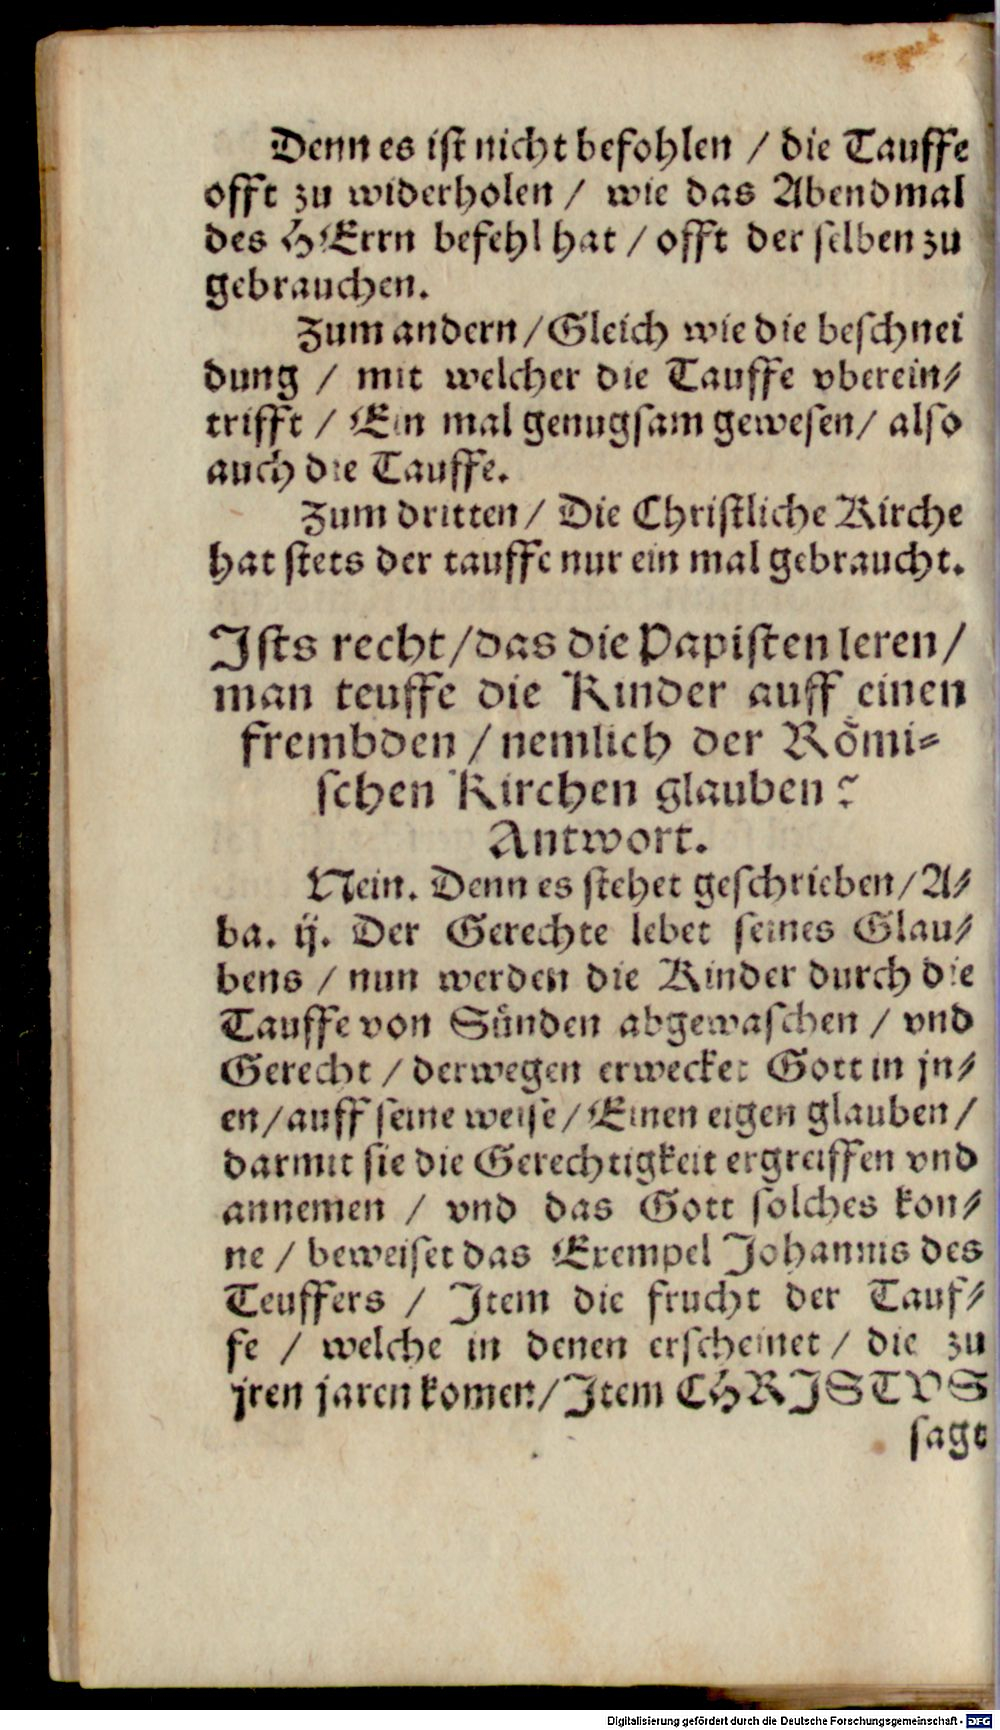 Denn es ist nicht befohlen / die Tauffe
offt zu widerholen / wie das Abendmal
des HErrn befehl hat / offt der selben zu
gebrauchen.
Zum andern / Gleich wie die beschnei
dung / mit welcher die Tauffe vberein⸗
trifft / Ein mal genugsam gewesen / also
auch die Tauffe.
Zum dritten / Die Christliche Kirche
hat stets der tauffe nur ein mal gebraucht.
Ists recht / das die Papisten leren /
man teuffe die Kinder auff einen
frembden / nemlich der Roͤmi⸗
schen Kirchen glauben?
Antwort.
Nein. Denn es stehet geschrieben / A⸗
ba. ij. Der Gerechte lebet seines Glau⸗
bens / nun werden die Kinder durch die
Tauffe von Suͤnden abgewaschen / vnd
Gerecht / derwegen erwecket Gott in jn⸗
en / auff seine weise / Einen eigen glauben /
darmit sie die Gerechtigkeit ergreiffen vnd
annemen / vnd das Gott solches kon⸗
ne / beweiset das Exempel Johannis des
Teuffers / Item die frucht der Tauf⸗
fe / welche in denen erscheinet / die zu
jren jaren komen / Item CHRISTVS
sagt
Digitalisierung gefördert durch die Deutsche Forschungsgemeinschaft - DFG